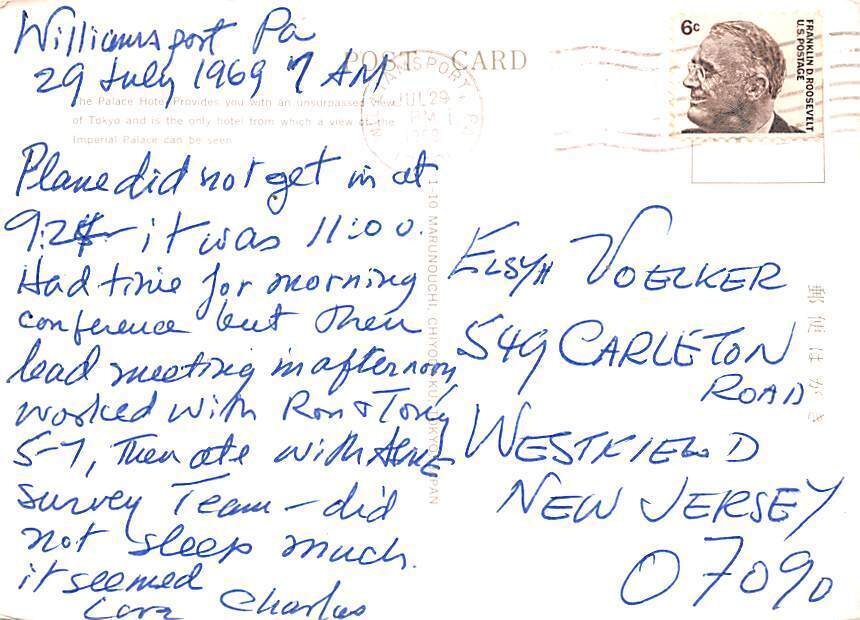 Williamsport Pa
29 July 1969 7 AM
POST CARD
The Palace Hotel Provides you with an unsurpassed view
of Tokyo and is the only hotel from which a view of the
Imperial Palace can be seen
Plane did not get in at
9:25 it was 11:00.
Had time for morning
conference but then
lead meeting in afternoon,
worked with Ron & Tony
5-7, then ate with
survey Team - did
not sleep much
it seemed
Love Charles
1-10 MARUNOUCHI, CHIYODA-KU, TOKYO, JAPAN
WILLIAMSPORT, PA
JUL 29
PM
1969
6c
FRANKLIN D. ROOSEVELT
U.S. POSTAGE
VOELKER
549 CARLETON
ROAD
WESTFIELD
NEW JERSEY
07090
郵便はがき